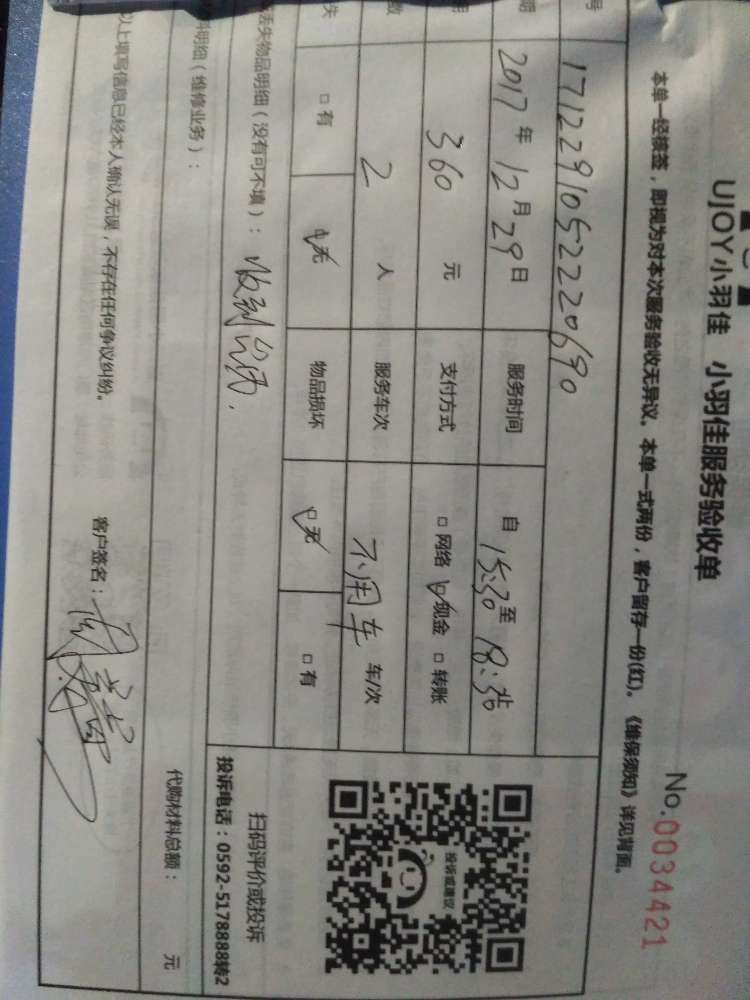 UJOY小羽佳 小羽佳服务验收单
No.0034421
本单一经接签，即视为对本次服务验收无异议。本单一式两份，客户留存一份(红)。《维保须知》详见背面。
号 1712291052220690
期 2017年12月29日 服务时间 自15:30至18:30止
用 360元 支付方式 □网络 ☑现金 □转账
数 2人 服务车次 不用车 车/次
失 □有 ☑无 物品损坏 ☑无 □有
丢失物品明细（没有可不填）： 收到
料明细（维修业务）：
代购材料总额： 元
以上填写信息已经本人确认无误，不存在任何争议纠纷。 客户签名：
投诉或建议
扫码评价或投诉
投诉电话：0592-5178888转2